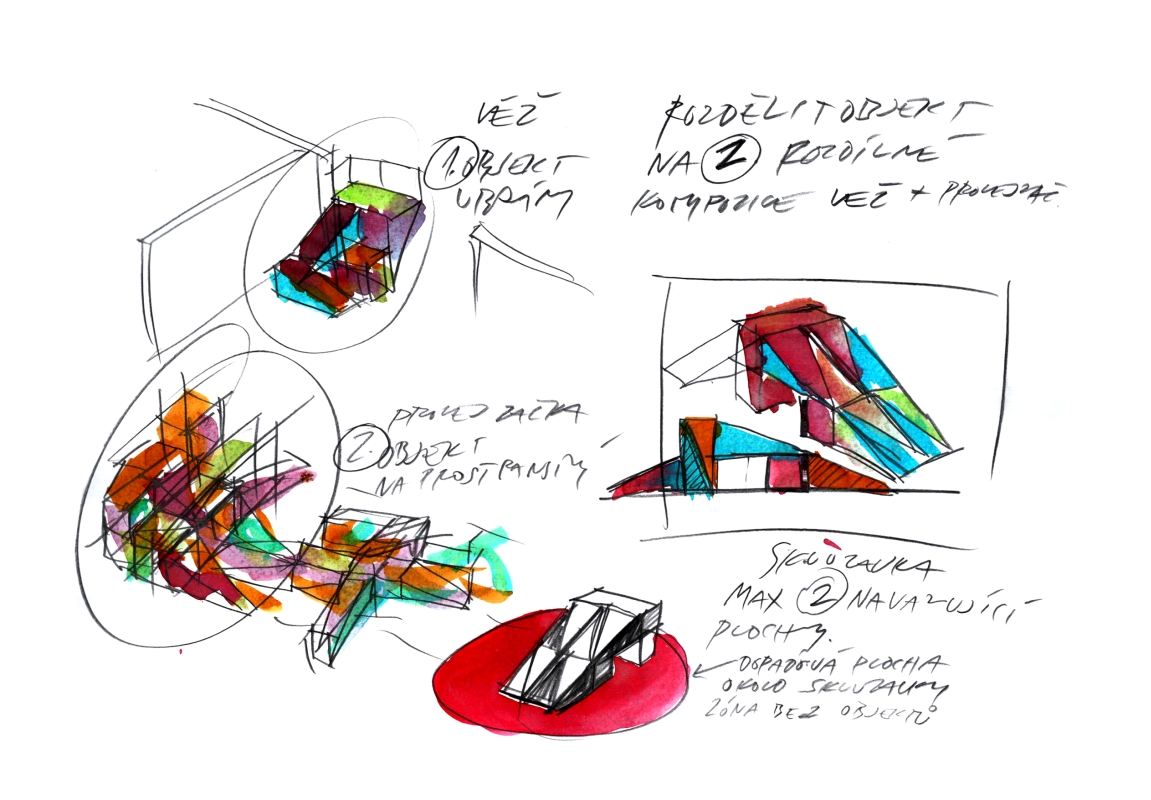 VĚŽ
1. OBJEKT
ROZDĚLIT OBJEKT
NA 2 ROZDÍLNÉ
KOMPOZICE VĚŽ +
2. OBJEKT
NA PROSTRANSTVÍ
SKLUZAVKA
MAX 2 NAVAZUJÍCÍ
PLOCHY.
DOPADOVÁ PLOCHA
OKOLO SKLUZAVKY
ZÓNA BEZ OBJEKTŮ